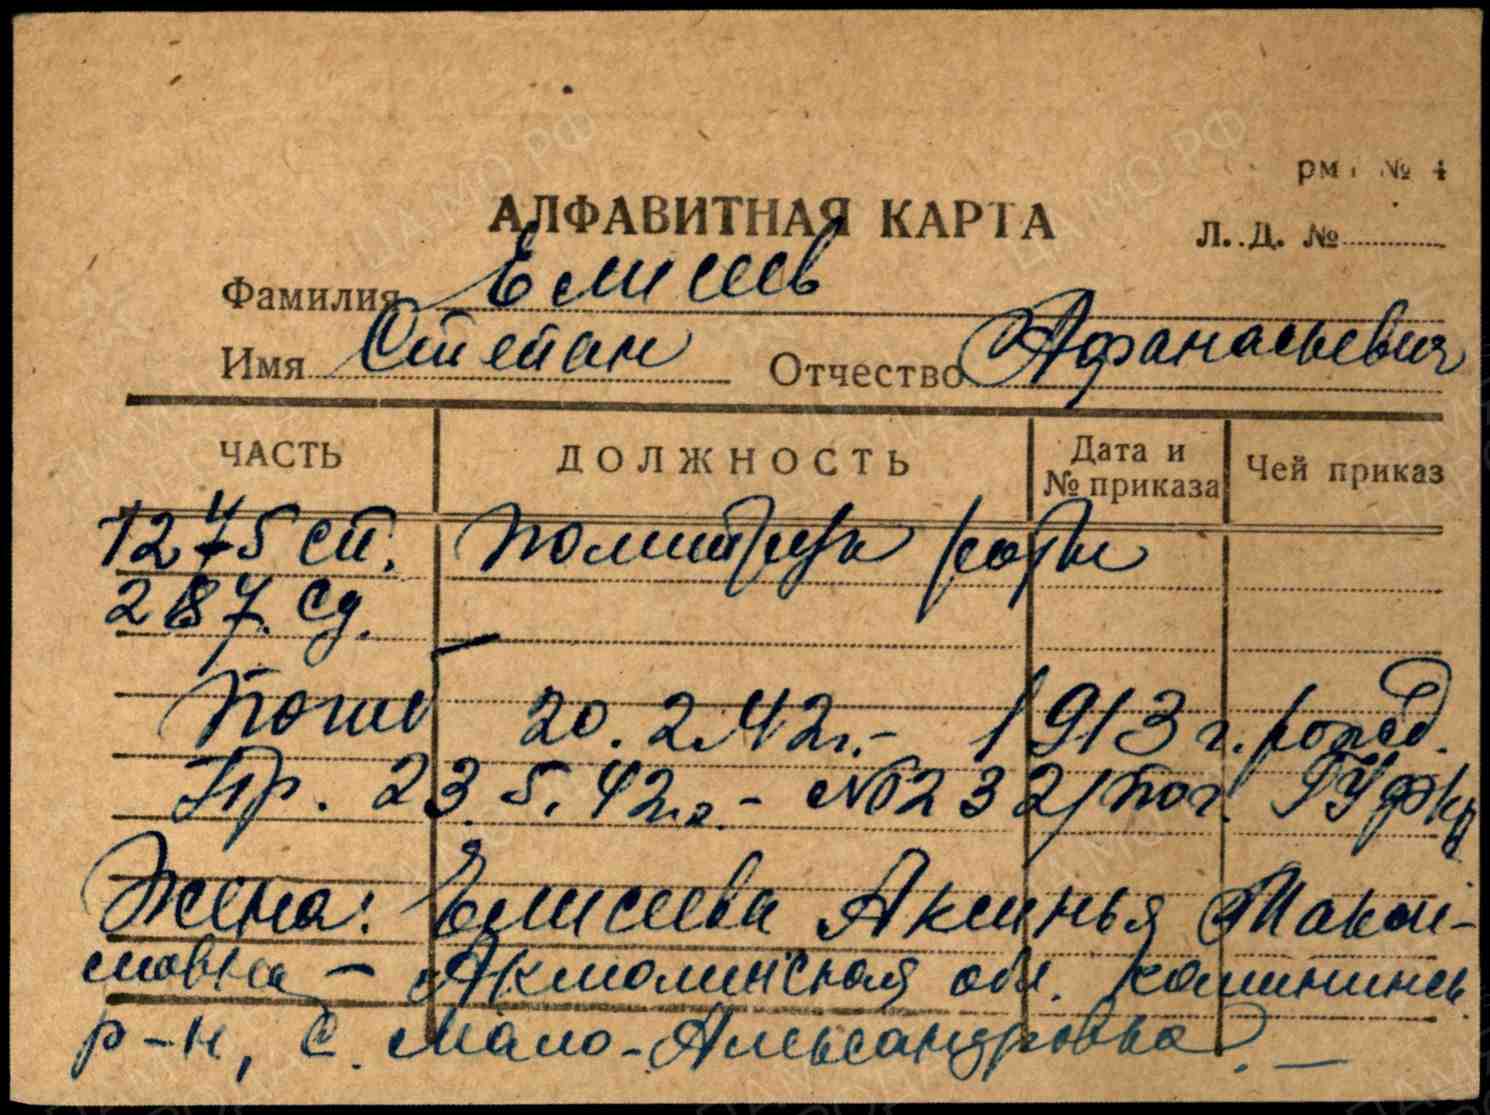 рм № 4
АЛФАВИТНАЯ КАРТА
Л. Д. №
Фамилия Елисеев
Имя Степан Отчество Афанасьевич
ЧАСТЬ ДОЛЖНОСТЬ Дата и № приказа Чей приказ
1275 сп. политрук роты
287 сд.
Погиб 20.2.42г.- 1913 г. рожд.
Пр. 23.5.42г. - №0232/пог. ГУфКр
Жена: Елисеева Аксинья Макси-
мовна - Акмолинская обл. калининск
р-н, с. Мало-Александровка. -
ЦАМО РФ